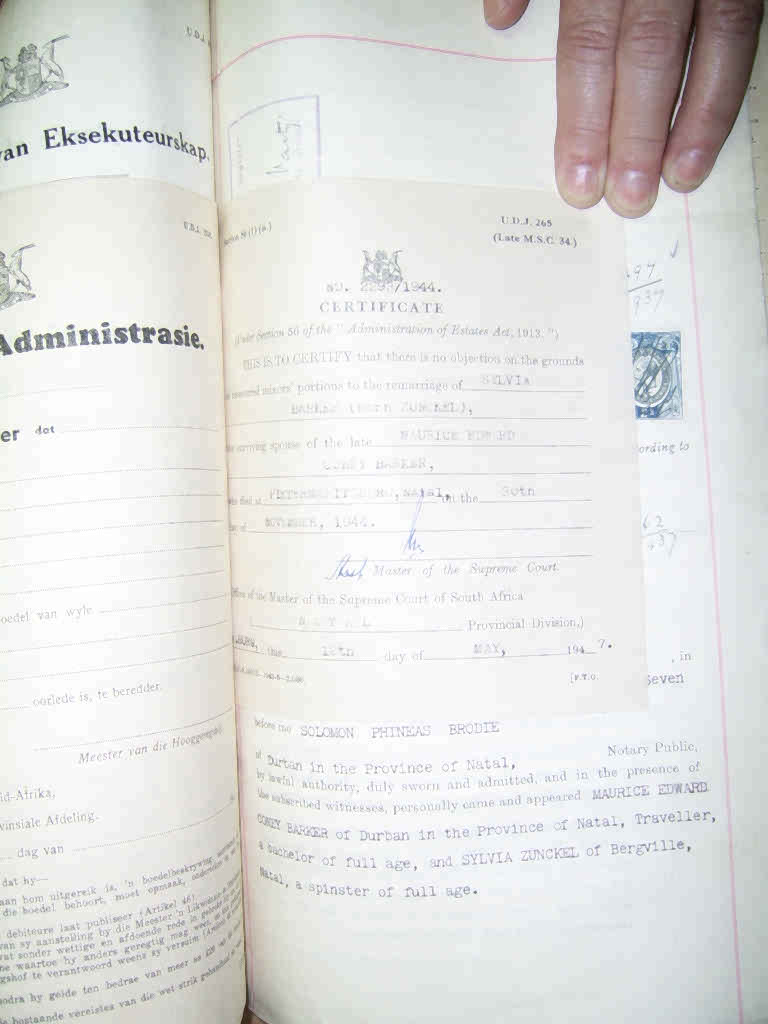 van Eksekuteurskap.
Administrasie.
er dat
oedel van wyle
oorlede is, te beredder.
Meester van die Hooggeregshof
id-Afrika,
vinsiale Afdeling.
dag van
dat hy—
aan hom uitgereik is, 'n boedelbeskrywing
die boedel behoort, moet opmaak,
debiteure laat publiseer (Artikel 46)
van sy aanstelling by die Meester 'n Likwidasie-
wat sonder wettige en afdoende rede in gebreke
ne waartoe hy anders geregtig mag wees,
gshof te verantwoord weens sy versuim
odra hy gelde ten bedrae van meer as £25
bostaande vereistes van die wet strik
U.D.J. 265
(Late M.S.C. 34.)
No. 2293/1944.
CERTIFICATE
(Under Section 56 of the "Administration of Estates Act, 1913.")
THIS IS TO CERTIFY that there is no objection on the grounds
minors' portions to the remarriage of SYLVIA
BARKER (born ZUNCKEL),
surviving spouse of the late MAURICE EDWARD
COREY BARKER,
who died at PIETERMARITZBURG, NATAL, on the 30th
day of NOVEMBER, 1944.
Asst. Master of the Supreme Court.
Office of the Master of the Supreme Court of South Africa
( NATAL Provincial Division,)
this 12th day of MAY, 1947.
[P.T.O.
97
937
ording to
62
37
, in
Seven
before me SOLOMON PHINEAS BRODIE
of Durban in the Province of Natal, Notary Public,
by lawful authority, duly sworn and admitted, and in the presence of
the subscribed witnesses, personally came and appeared MAURICE EDWARD
COREY BARKER of Durban in the Province of Natal, Traveller,
a bachelor of full age, and SYLVIA ZUNCKEL of Bergville,
Natal, a spinster of full age.